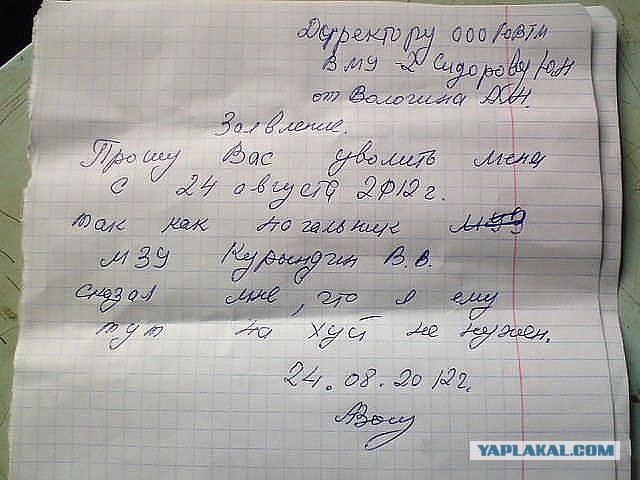 Директору ООО ЮВТМ
ВМУ-2 Сидорову Ю.Н
от Вологина А.Н.
Заявление.
Прошу Вас уволить меня
с 24 августа 2012 г.
так как начальник
МЗУ Курындин В.В.
сказал мне, что я ему
тут на хуй не нужен.
24.08.2012г.
YAPLAKAL.COM